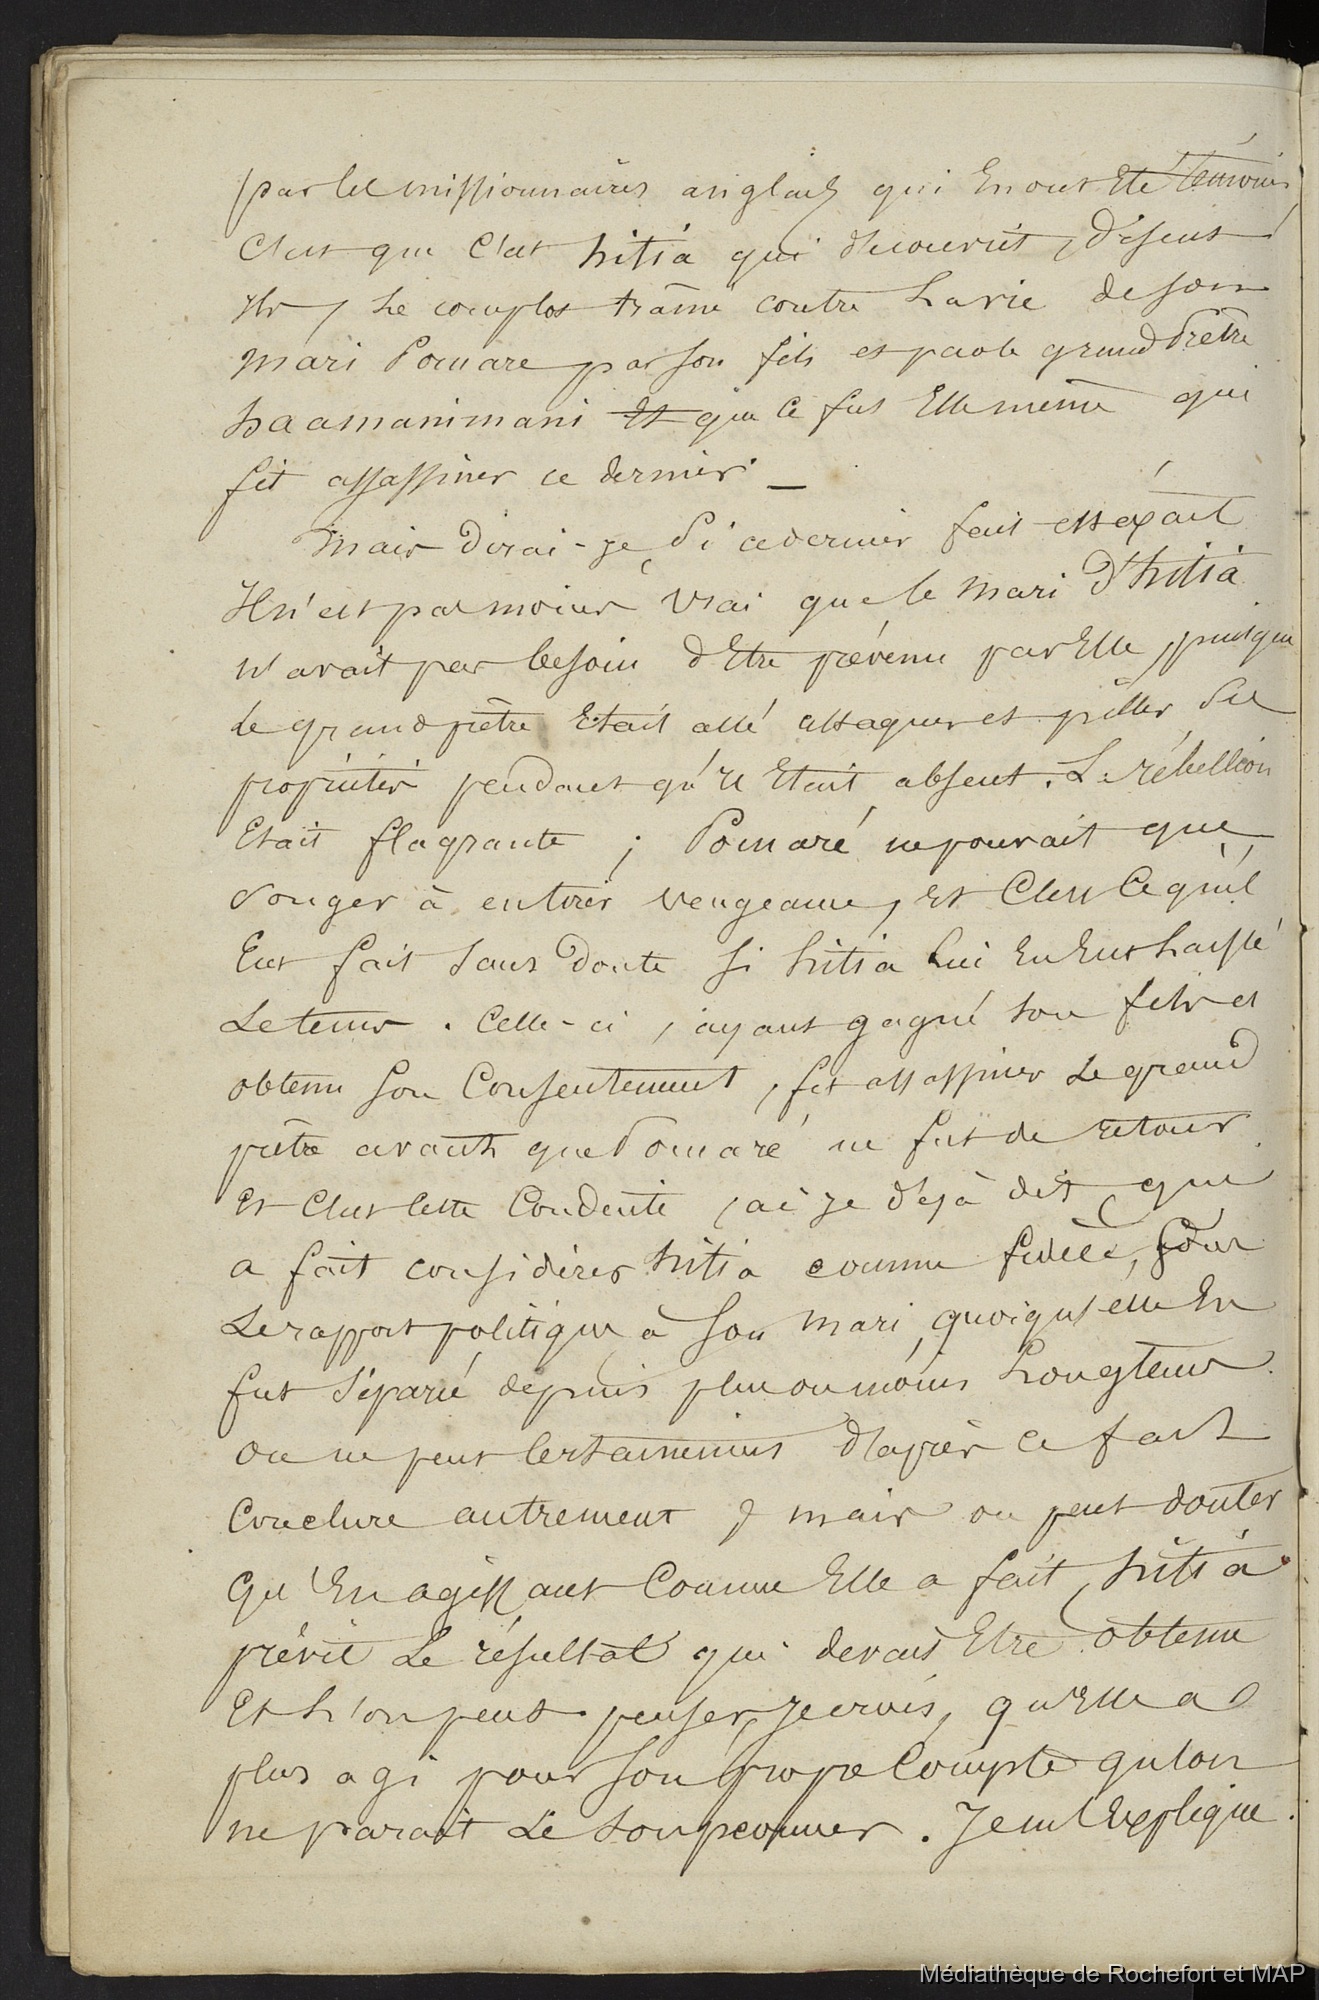 par les missionnaires anglais qui En ont Eté témoins,
C'est que C'est hitia qui découvrit, disent
ils, Le complot trâmé contre La vie de son
mari Pomare par son fils et par le grand Prêtre
haamanimani Et que Ce fut Elle même qui
fit assassiner ce dernier. _
Mais dirai-je, Si ce dernier fait est exact
Il n'est pas moins vrai que le Mari d'hitia
n'avait pas besoin d'Etre prévenu par Elle, puisque
Le grand prêtre Etait allé attaquer et piller Ses
propriétés pendant qu'il Etait absent. La rébellion
Etait flagrante ; Pomaré ne pouvait que
Songer à en tirer vengeance, Et C'est Ce qu'il
Eut fait Sans Doute Si hitia Lui En Eut Laissé
Le tems. Celle-ci, ayant gagné son fils et
obtenu son Consentement, fit assassiner Le grand
prêtre avant que Pomaré ne fut de retour.
Et C'est Cette Conduite, ai je déjà dit, que
a fait considérer hitia comme fidèle, sous
Le rapport politique à Son mari, quoiqu'elle En
fut Séparée depuis plus ou moins Longtems.
on ne peut Certainement D'après ce fait
Conclure autrement ; mais on peut douter
Qu'En agissant Comme Elle a fait, hitia
prévit Le résultat qui devait Etre obtenu
Et L'on peut penser, je crois, qu'Elle a
plus agi pour Son propre Compte qu'on
ne parait Le Soupçonner. Je m'Explique.
Médiathèque de Rochefort et MAP